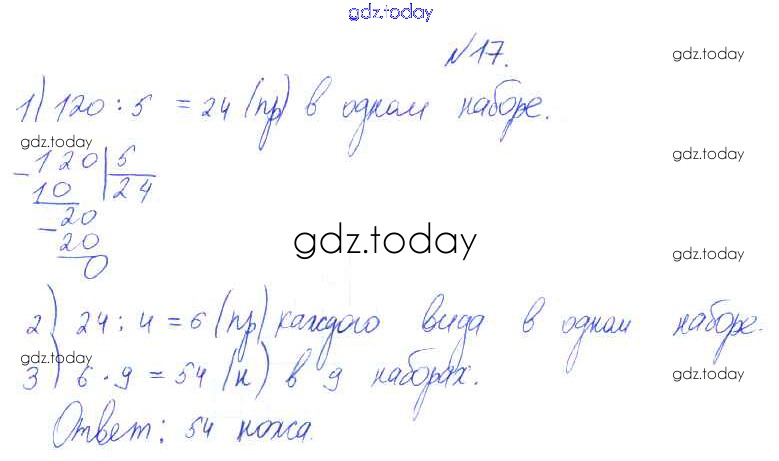 gdz.today
N 17.
gdz.today
1) 120 : 5 = 24 (пр) в одном наборе.
gdz.today
gdz.today
- 120 | 5
10 | 24
- 20
20
0
gdz.today
gdz.today
2) 24 : 4 = 6 (пр) каждого вида в одном наборе.
gdz.today
3) 6 · 9 = 54 (н) в 9 наборах.
gdz.today
Ответ: 54 ножа.